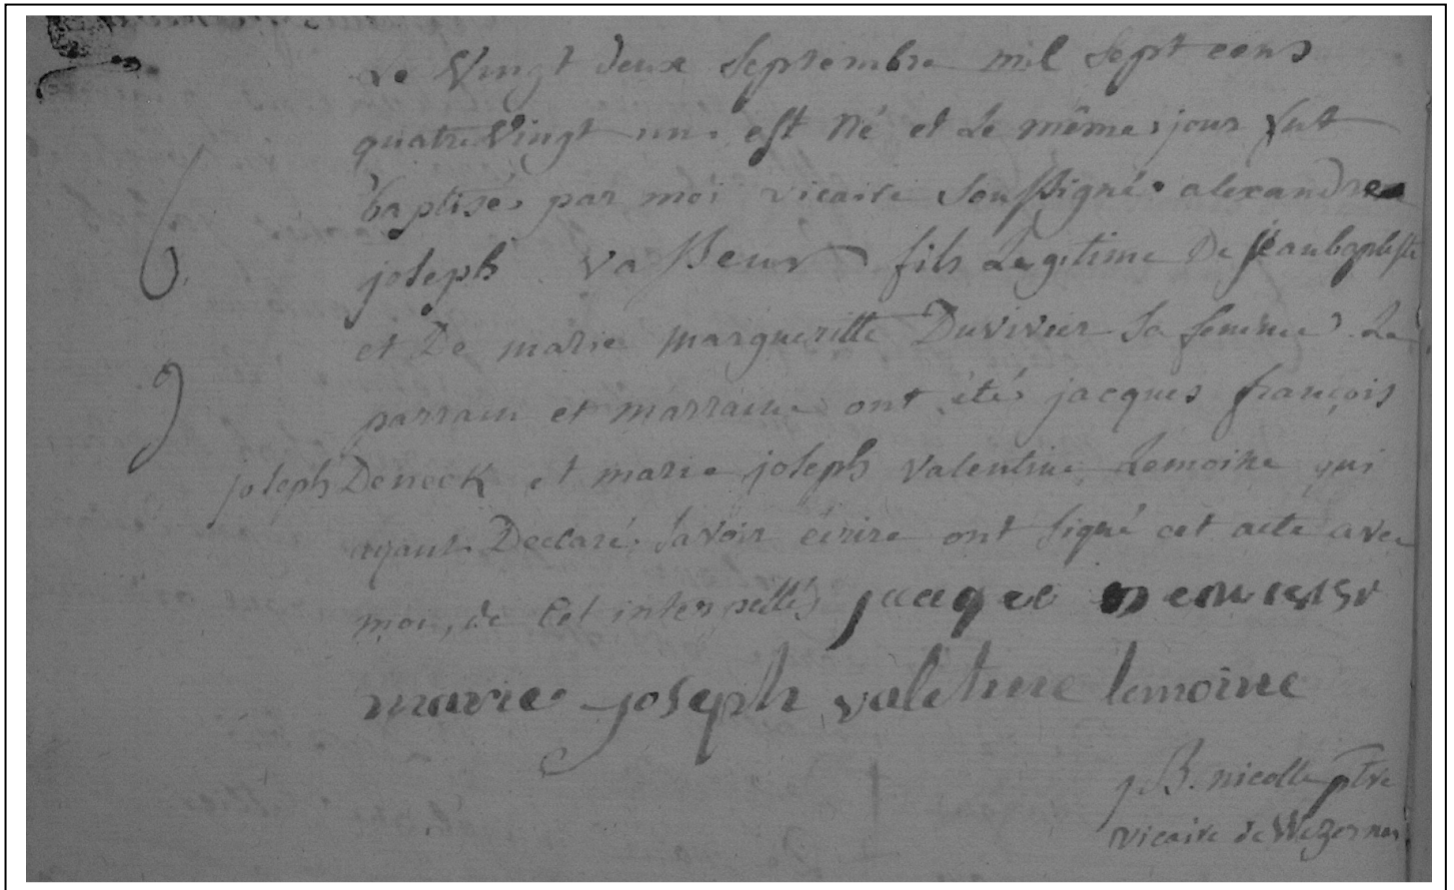 Le Vingt deux Septembre mil Sept cens
quatreVingt un est né et Le même jour fut
baptisé par moi vicaire Soussigné alexandre
joseph vasseur fils Legitime De jeanbaptiste
et De marie margueritte Duvivier Sa femme Le
parrain et marraine ont été jacques françois
joseph Deneck et marie joseph valentine Lemoine qui
ayant Declaré Savoir écrire ont Signé cet acte avec
moi, de cet interpellés jacque
marie joseph valetine lemoine
j B. nicolle ptre
vicaire de Wizernes